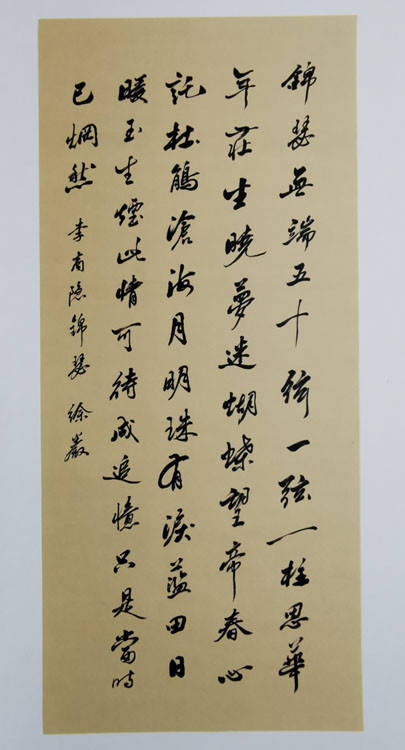 錦瑟無端五十弦一弦一柱思華
年莊生曉夢迷蝴蝶望帝春心
託杜鵑滄海月明珠有淚藍田日
暖玉生煙此情可待成追憶只是當時
已惘然 李商隱錦瑟 徐巖